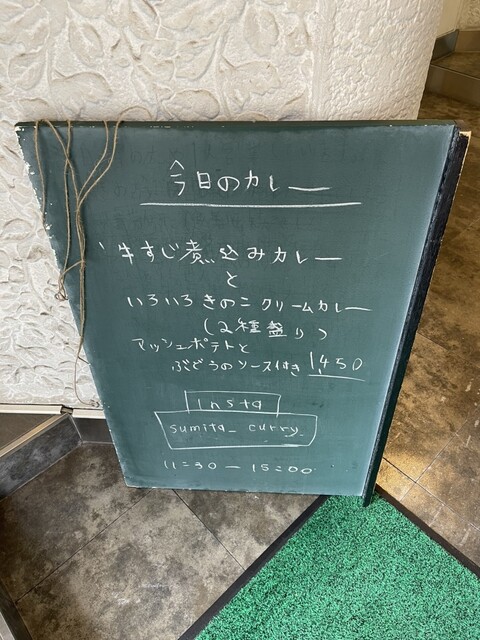 今日のカレー
牛すじ煮込みカレー
と
いろいろきのこクリームカレー
(2種盛り)
マッシュポテトと
ぶどうのソース付き 1,450
insta
sumita_curry
11:30 — 15:00